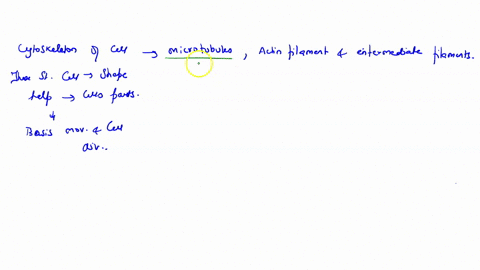 Cytoskeleton of Cell → microtubules, Actin filament & entermediate filaments.
These St. Cell → Shape
help → Cells parts.
↓
Basis mov. & Cell
div..